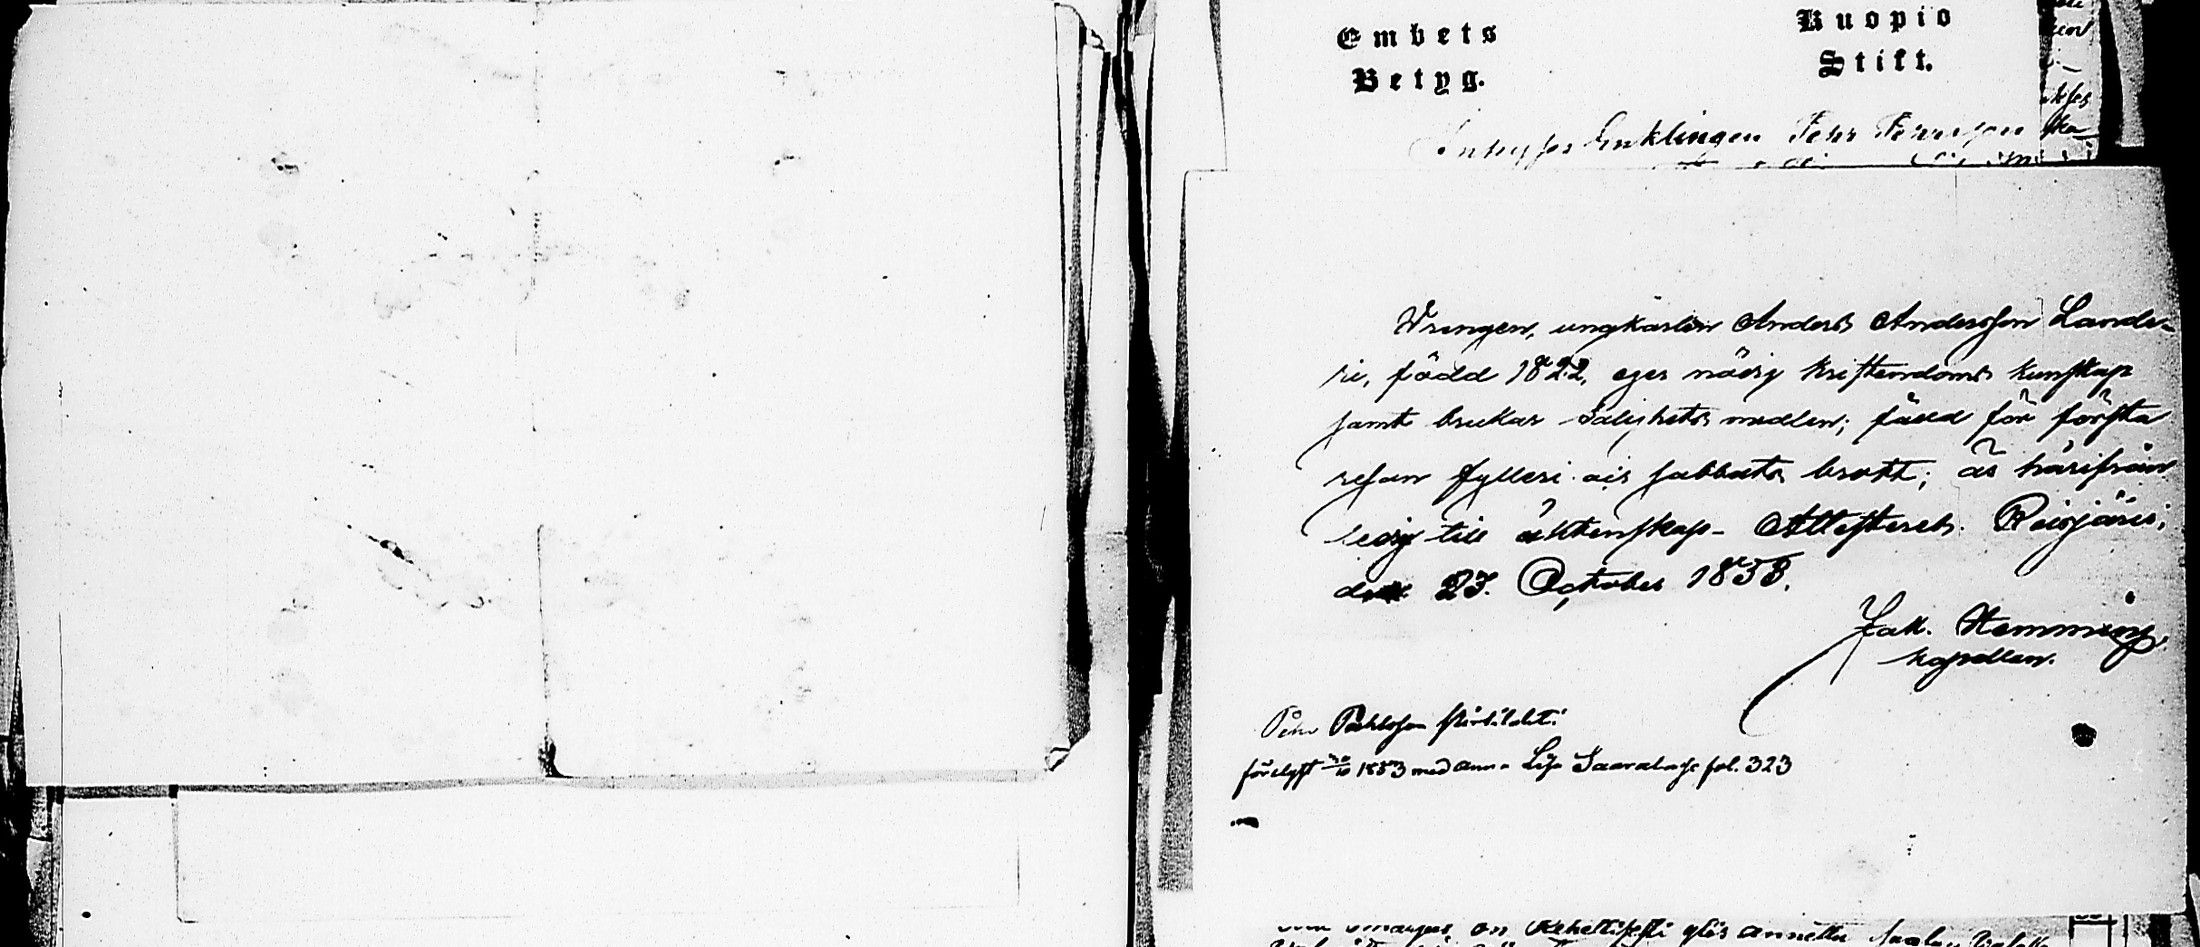 Embets
Betyg.
Kuopio
Stift.
Enklingen Pehr Pehrsson
Drengen, ungkarlen Anders Andersson Lande-
ri, född 1822, eger nöijg kristendoms kunskap
samt brukar Salighets medlen; fäld för första
resan fylleri och sabbats brott; är härifrån
ledig till äktenskap. Attesterch. Reisjärvi,
den 23. October 1853.
Jak. Hemming,
kapellan.
Pehr Pahlsson
förelyst 1853 med Anna Lisa fol. 323
on annettu